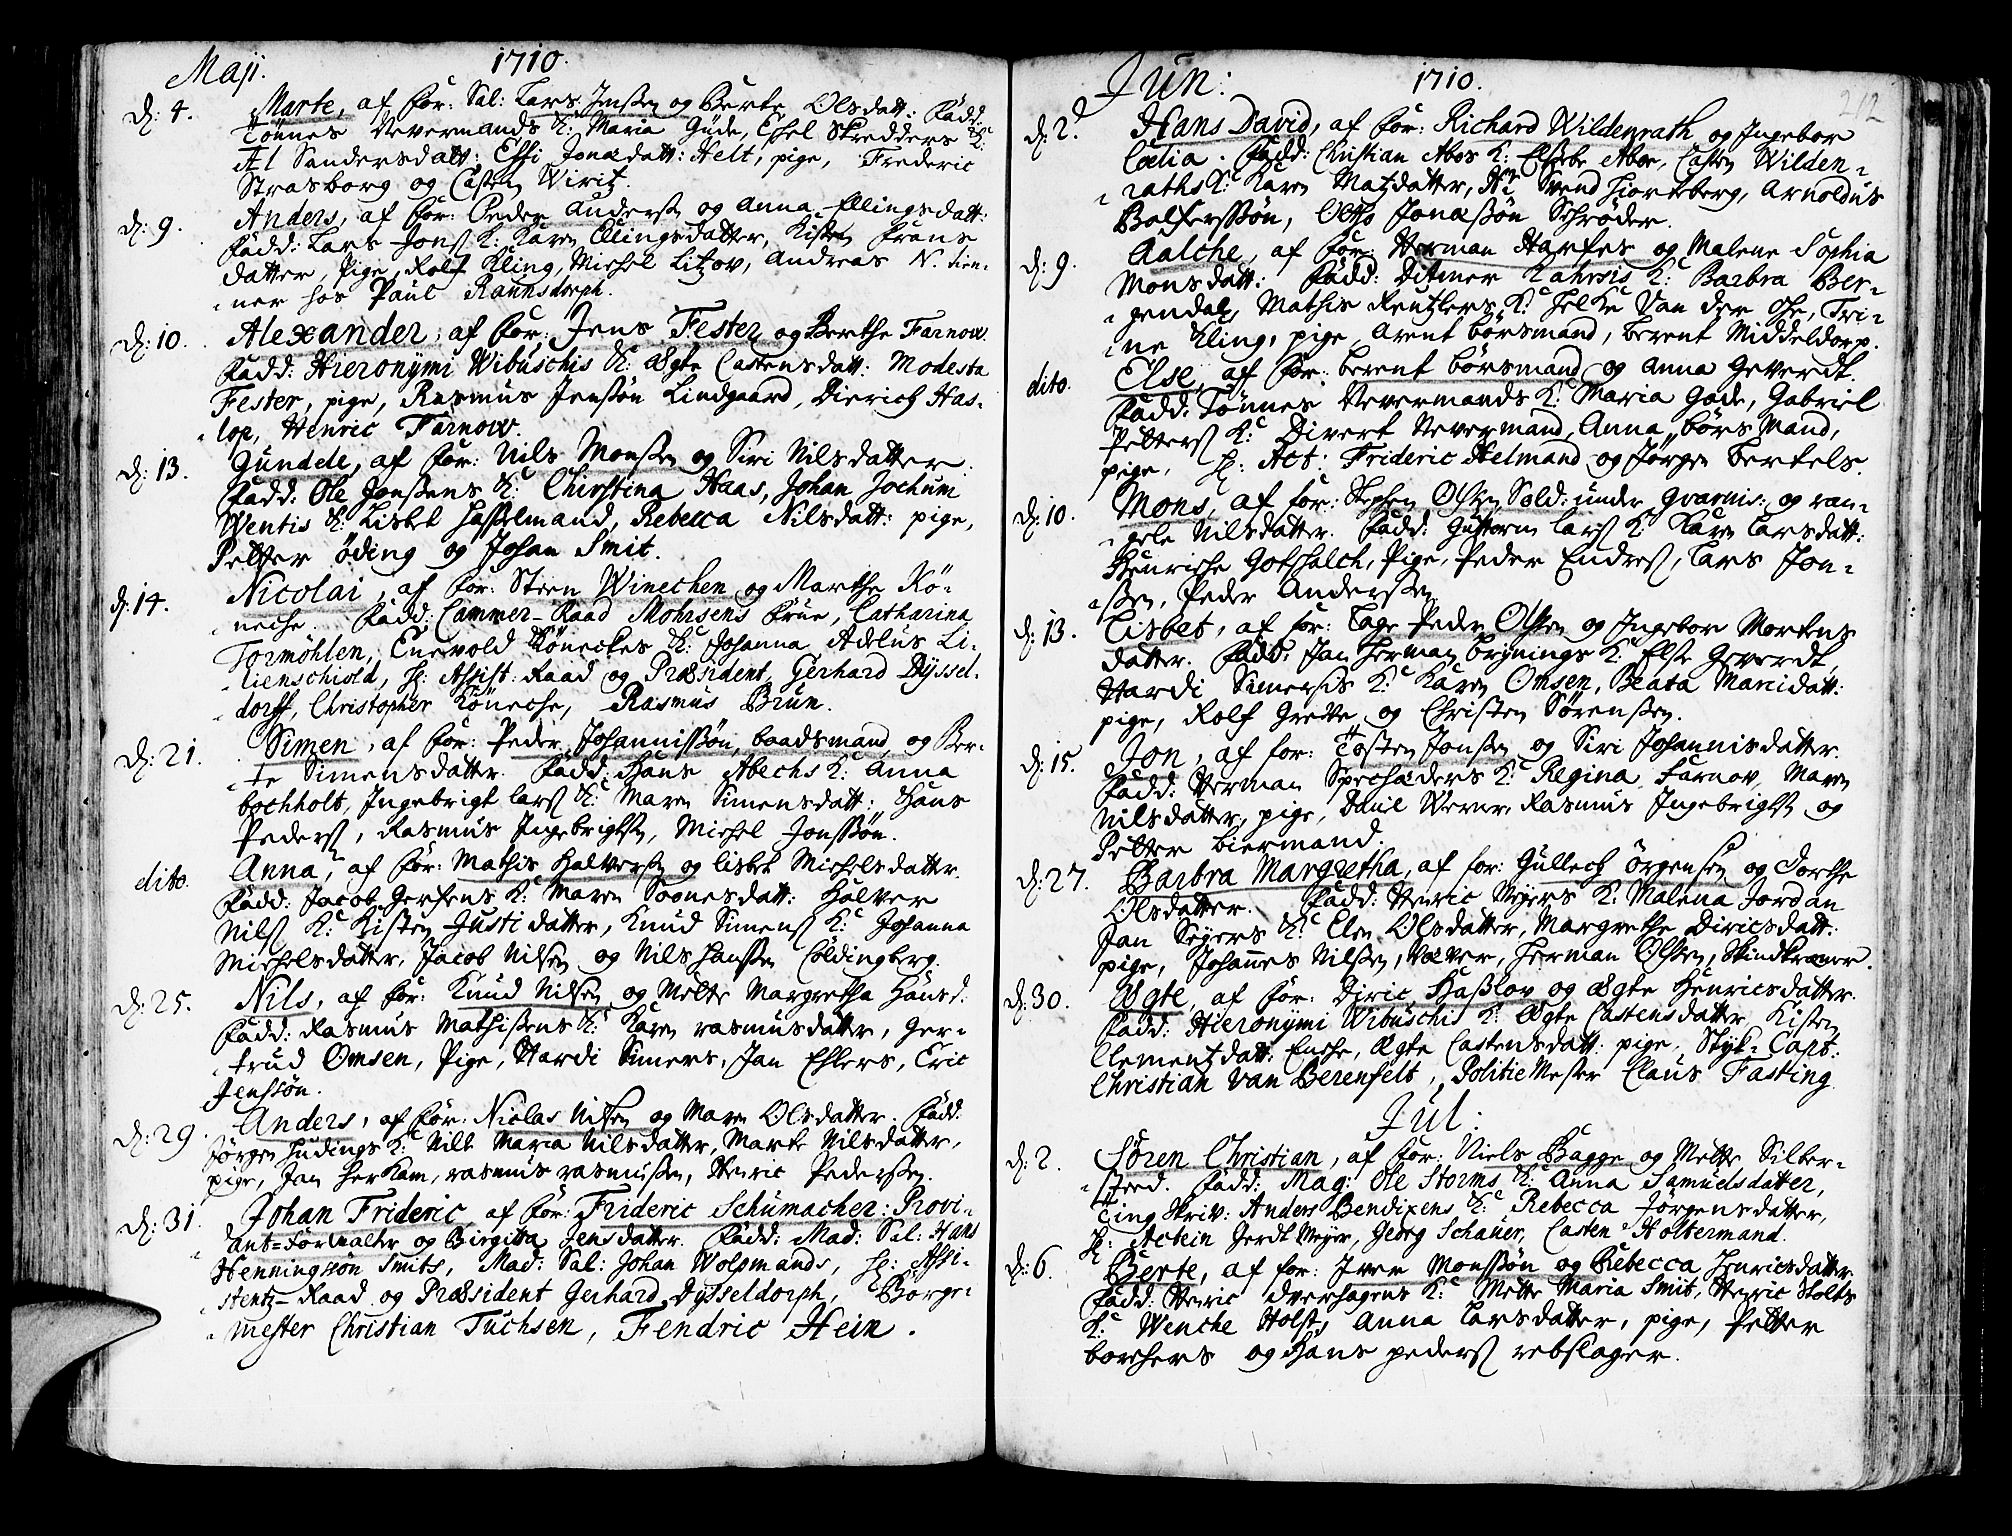 Maji. 1710.
d: 4. Marte, af for: Sal: Lars Jenssen og Berte Olsdatt: Fadd:
Tönnes Nevermands K: Maria Gude, Skredders K:
Al Sandersdatt: Effi Jonædatt: Helt, pige, Frederic
Strasborg og Casten Wiritz.
d: 9. Anders, af for: Peder Anderss og Anna Ellingsdatt:
Fadd: Lars Jons K: Karen Ellingsdatter, Kisten Frans
datter, Pige, Rolf Kling, Michel Litzov, Andreas N. tien-
ner hos Paul Raunsdorph.
d: 10. Alexander, af for: Jens Fester og Berthe Farnow.
Fadd: Hieronymi Wibuschis K: Ægte Castensdatt: Modesta
Fester, pige, Rasmus Jenssön Lindgaard, Dierich Has-
lop, Henric Farnow.
d: 13. Gundele, af for: Nils Monssen og Siri Nilsdatter.
Fadd: Ole Jenssens K: Chirstina Haas, Johan Jochum
Wentis K: Lisbet Hasselmand, Rebecca Nilsdatt: pige,
Petter Öding og Johan Smit.
d: 14. Nicolai, af for: Steen Winechen og Marthe Kö-
neche. Fadd: Cammer-Raad Mohrsens Frue, Catharina
Tormöhlen, Enevold Köneckes K: Johanna Adelus Li-
lienschiold, H: Assist: Raad og Præsident Gerhard Dyssel-
dorff, Christopher Köneche, Rasmus Brun.
d: 21. Simen, af for: Peder Johannissön, baadsmand, og Ber-
te Simensdatter. Fadd: Hans Abechs K: Anna
bochholt, Ingebrigt lars K: Maren Simensdatt: Hans
Peders, Rasmus Ingebrigtss, Michel Jonssön.
dito. Anna, af for: Mathis Halverss og lisbet Michelsdatter.
Fadd: Jacob Gerfens K: Maren Sognesdatt: Halver
Nils K: Kisten Justidatter, Knud Simens K: Johanna
Michelsdatter, Jacob Nilsen og Nils Hanssen Coldingberg.
d: 25. Nils, af for: Knud Nilsen og Mette Margretha Hansd.
Fadd: Rasmus Mathissens K: Karen rasmusdatter, Ger-
trud Omsen, Pige, Hardi Simers, Jan Ehlers, Eric
Jenssön.
d: 29. Anders, af for: Niclas Nilsen og Maren Olsdatter. Fadd:
Jörgen Hudings K: Nille Maria Nilsdatter, Marte Nilsdatter,
pige, Jan Herkam, rasmus rasmussen, Henric Pederssen.
d: 31. Johan Frideric, af for: Frideric Schumacher: Provi-
ant-Forvalter og Birgitta Jensdatter. Fadd: Mad: Sal: Hans
Henningsön Smits, Mad: Sal: Johan Wolpmands, H: Assi-
stentz-Raad og Præsident Gerhard Dysseldorph, Borge-
mester Christian Tuchsen, Fendric Hein.
Jun: 1710. 212
d: 2. Hans David, af for: Richard Wildenrath og Ingebor
Cælia. Fadd: Christian Abos K: Elsebe Aboe, Casten Wilden-
raths K: Karen Matzdatter, Hr Svend Hiortberg, Arnoldus
Bolferssön, Otto Jonæssön Schröder.
d: 9. Aalche, af for: Herman Harfes og Malene Sophia
Monsdatt: Fadd: Ditmer Kahrsis K: Barbra Ber-
gendal, Mathis Reutzlers K: Helke Van der Ohe, Tri-
ne Kling, pige, Arent börsmand, berent Middeldorp.
dito. Else, af for: berent börsmand og Anna Geverdt.
Fadd: Tönnes Nevermands K: Maria Gude, Gabriel
Petters K: Divert Nevermand, Anna börsmand,
pige, H: Act: Frideric Helmand og Jörgen Bertels.
d: 10. Mons, af for: Stephen Olsen Sold: under Gvarnis: og ran-
gele Nilsdatter. Fadd: Guttorm lars K: Karen Larsdatt:
Henriche Gotschalch, Pige, Peder Endres, Lars Jon-
ssen, Peder Anderssen.
d: 13. Lisbet, af for: Tage Peder Olsen og Ingebor Mortens
datter. Fadd: Jan Herman bryningsK: Else Geverdt,
Hardi Simersis K: Karen Omsen, Beata Marcidatt:
pige, Rolf Grette og Christen Sörenssen.
d: 15. Jon, af for: Tosten Jonssen og Siri Johannisdatter.
Fadd: Herman Spechæders K: Regina Farnov, Maren
Nilsdatter, pige, Paul Werner, Rasmus Ingebrigts og
Petter Biermand.
d: 27. Barbra Margretha, af for: Gullech Örgenssen og Dorthe
Olsdatter. Fadd: Henric Meyers K: Malena Jordan
Jan Seyers K: Elen Olsdatter, Margrethe Diricsdatt:
pige, Johannes Nilssen, Væver, Herman Olssen, Skindkræmer.
d: 30. Ægte, af for: Diric Hasslov og Ægte Henricsdatter.
Fadd: Hieronymi Wibuschis K: Ægte Castensdatter, Kisten
Clementzdatt: Enche, Ægte Castensdatt: pige, Styk-Capt:
Christian van Berenfelt, PolitieMester Claus Fasting.
Jul:
d: 2. Sören Christian, af for: Niels Bagge og Mette Silber-
steed. Fadd: Mag: Ole Storms K: Anna Samuelsdatter,
Ting Skriv: Anders Bendixens K: Rebecca Jörgensdatter,
H: Actein Gerdt Meyer, Georg Schauer, Casten Holtermand.
d: 6. Berte, af for: Iver Monssön og Rebecca Henricsdatter.
Fadd: Henric Overhagens K: Mette Maria Smit, Henric Holts
K: Wenche Holst, Anna Larsdatter, pige, Petter
borchers og Hans peders rebslager.